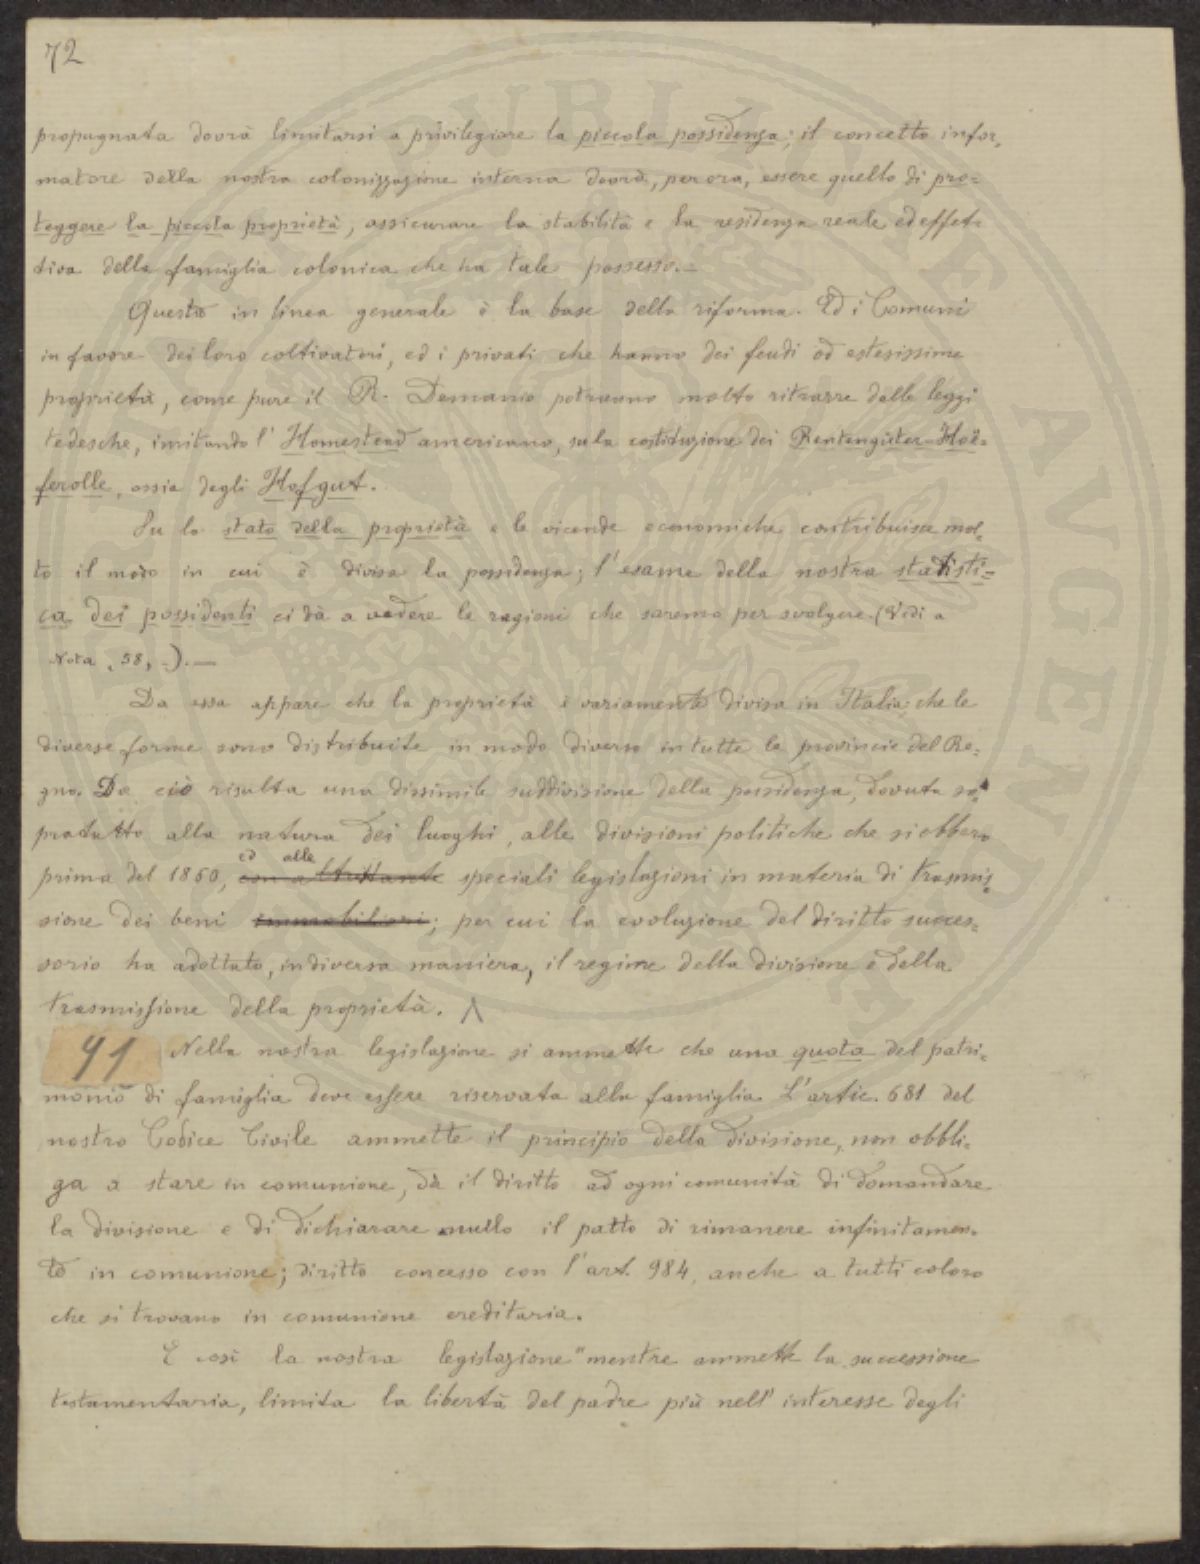 72
propugnata dovrà limitarsi a privilegiare la piccola possidenza; il concetto infor,
matore della nostra colonizzazione interna dovrà, per ora, essere quello di pro=
teggere la piccola proprietà, assicurare la stabilità e la residenza reale ed effet=
tiva della famiglia colonica che ha tale possesso.—
Questo in linea generale è la base della riforma. Ed i Comuni
in favore dei loro coltivatori, ed i privati che hanno dei feudi od estesissime
proprietà, come pure il R. Demanio potranno molto ritrarre dalle leggi
tedesche, imitando l' Homestead americano, su la costituzione dei Rentengüter-Höe=
ferolle, ossia degli Hofgut.
Su lo stato della proprietà e le vicende economiche contribuisce mol,
to il modo in cui è divisa la possidenza; l'esame della nostra statisti=
ca dei possidenti ci dà a vedere le ragioni che saremo per svolgere. (Vedi a
Nota, 58, -).—
Da essa appare che la proprietà è variamente divisa in Italia; che le
diverse forme sono distribuite in modo diverso in tutte le provincie del Re=
gno. Da ciò risulta una dissimile suddivisione della possidenza, dovuta so,
pratutto alla natura dei luoghi, alle divisioni politiche che si ebbero
ed alle
prima del 1860, con altrettante speciali legislazioni in materia di trasmis,
sione dei beni immobiliari; per cui la evoluzione del diritto succes=
sorio ha adottato, in diversa maniera, il regime della divisione e della
trasmissione della proprietà. Λ
91 Nella nostra legislazione si ammette che una quota del patri=
monio di famiglia deve essere riservata alla famiglia. L'artic. 681 del
nostro Codice Civile ammette il principio della divisione, non obbli=
ga a stare in comunione, dà il diritto ad ogni comunità di domandare
la divisione e di dichiarare nullo il patto di rimanere infinitamen=
te in comunione; diritto concesso con l'art. 984, anche a tutti coloro
che si trovano in comunione ereditaria.
E così la nostra legislazione "mentre ammette la successione
testamentaria, limita la libertà del padre più nell' interesse degli